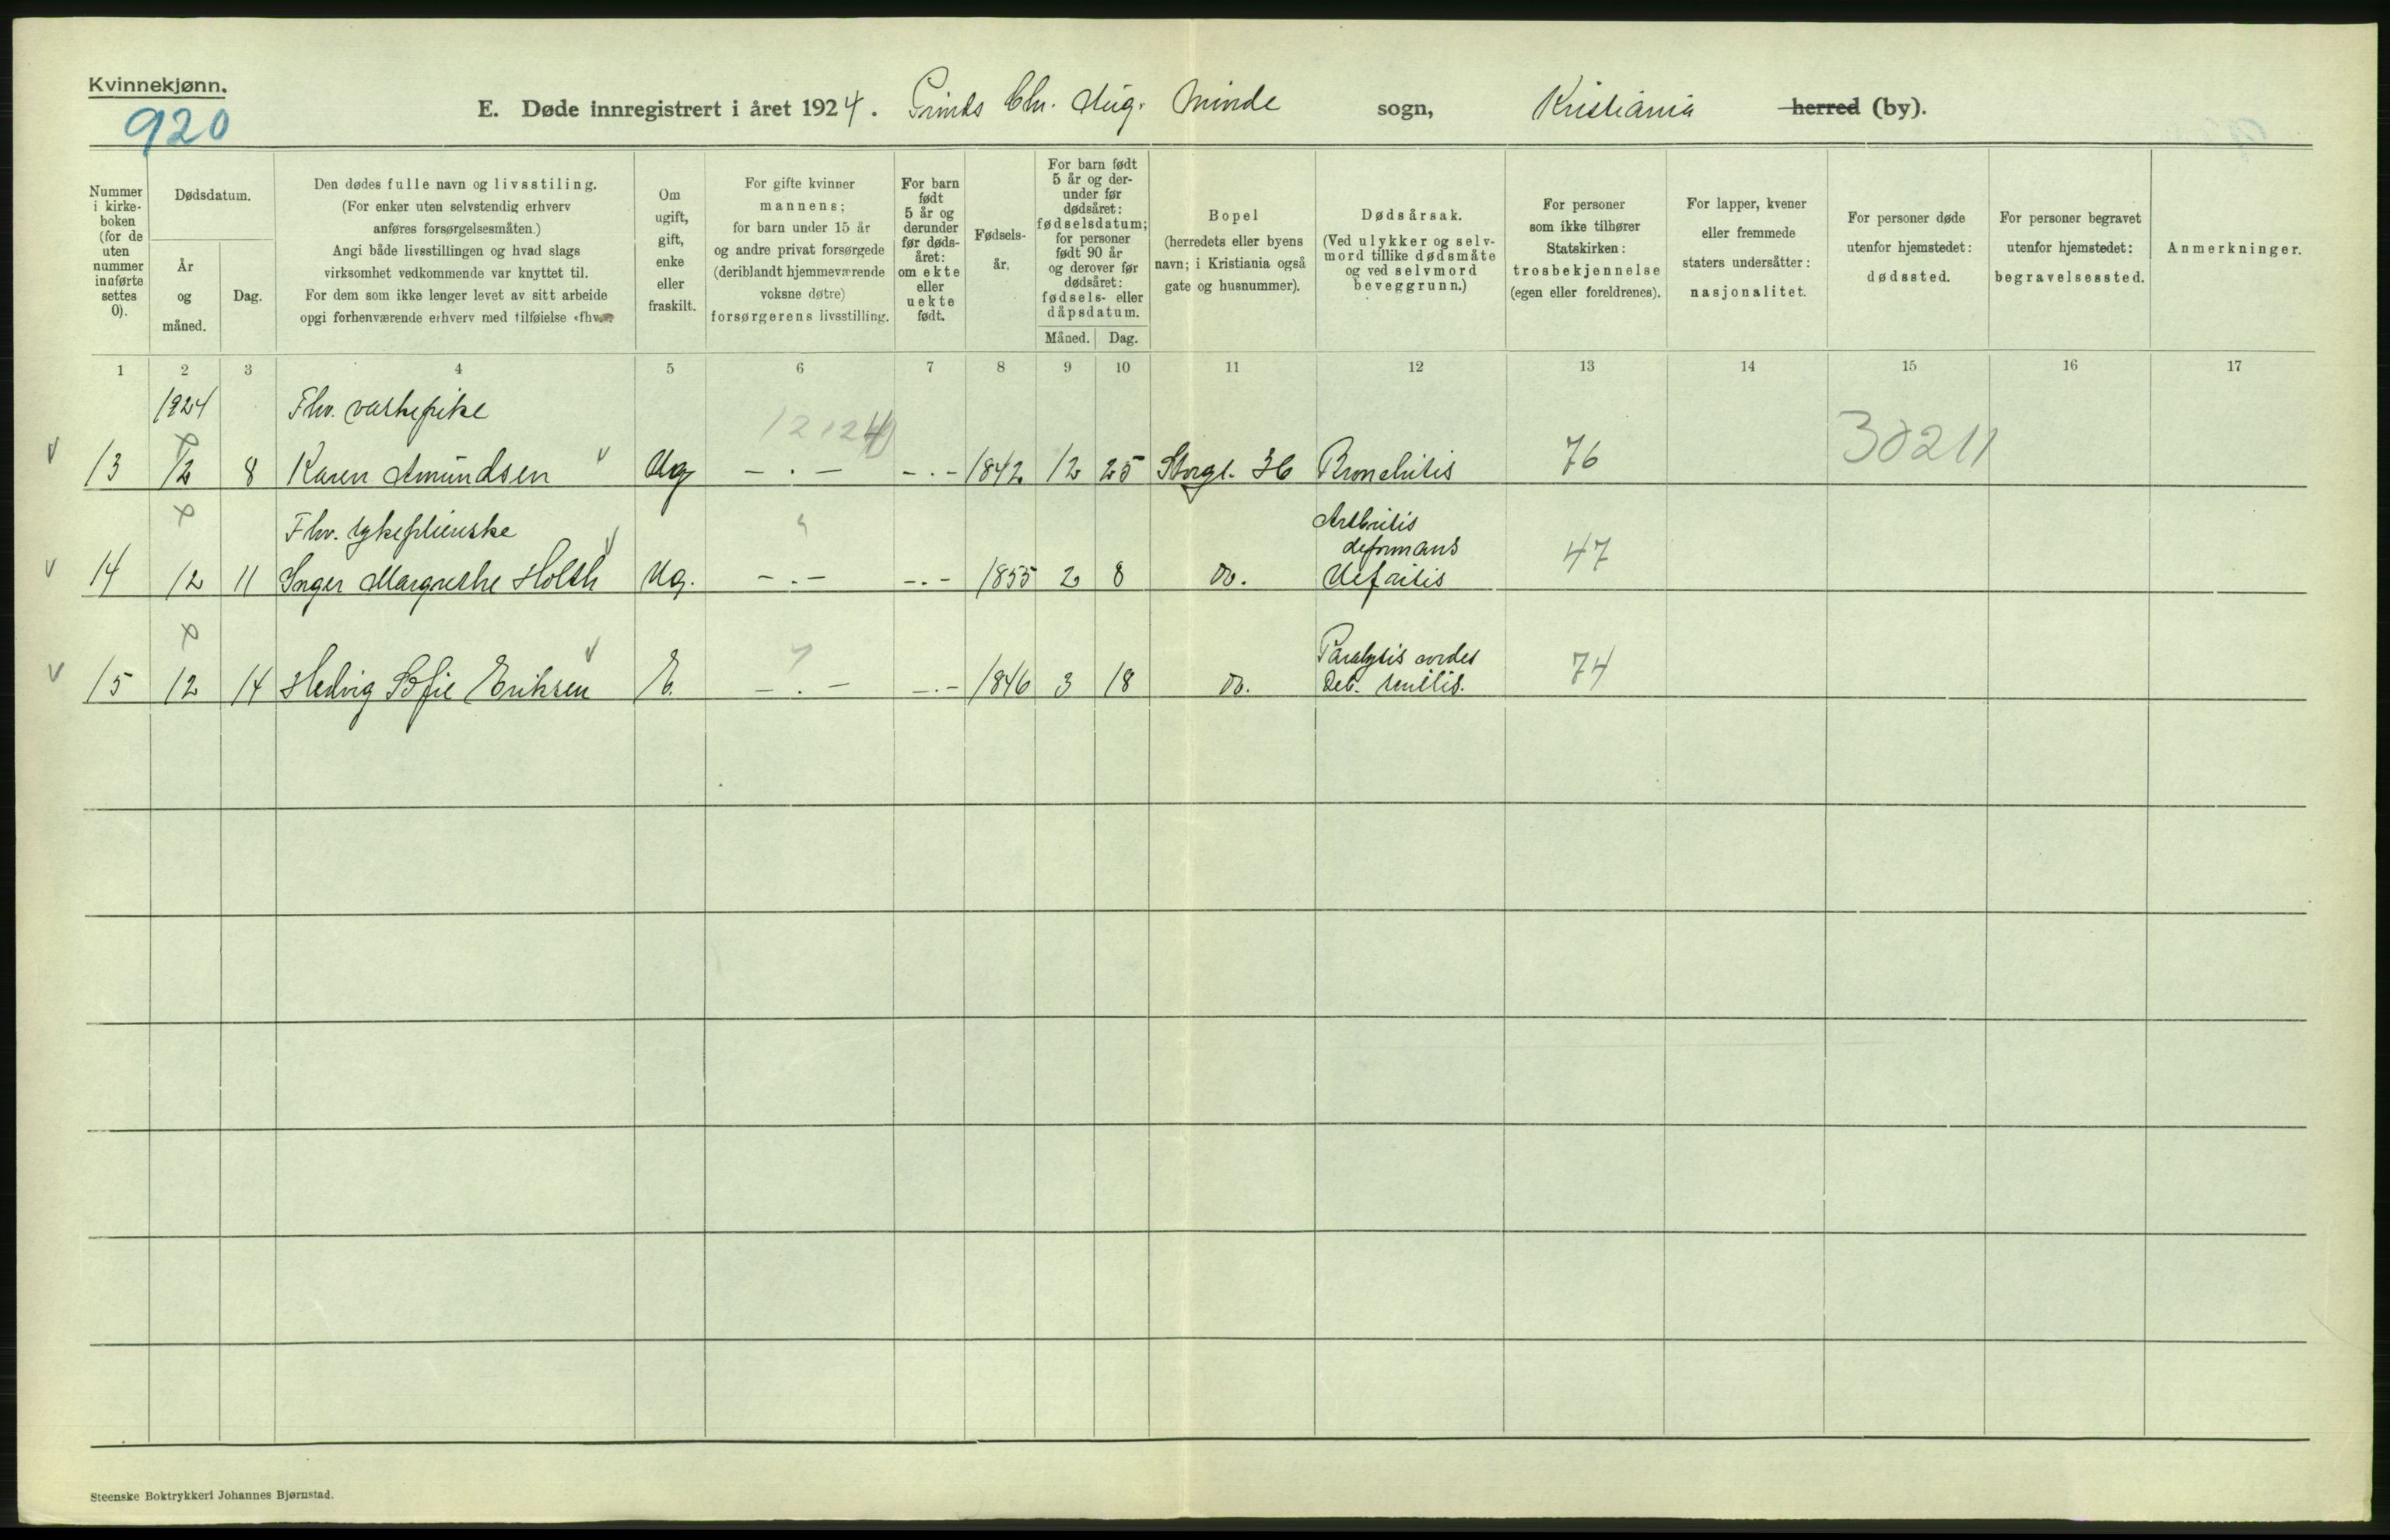 Kvinnekjønn.
920
E. Døde innregistrert i året 1924. Prinds Chr. Aug. Minde sogn, Kristiania herred (by).
Nummer i kirke-boken (for de uten nummer innførte settes 0).
Dødsdatum.
År og måned.
Dag.
Den dødes fulle navn og livsstiling.
(For enker uten selvstendig erhverv
anføres forsørgelsesmåten.)
Angi både livsstillingen og hvad slags
virksomhet vedkommende var knyttet til.
For dem som ikke lenger levet av sitt arbeide
opgi forhenværende erhverv med tilføielse «fhv.»
Om ugift, gift, enke eller fraskilt.
For gifte kvinner
mannens;
for barn under 15 år
og andre privat forsørgede
(deriblandt hjemmeværende
voksne døtre)
forsørgerens livsstilling.
For barn født 5 år og derunder før døds-året: om ekte eller uekte født.
Fødsels-år.
For barn født
5 år og der-
under før
dødsåret:
fødselsdatum;
for personer
født 90 år
og derover før
dødsåret:
fødsels- eller
dåpsdatum.
Måned. Dag.
Bopel
(herredets eller byens
navn; i Kristiania også
gate og husnummer).
Dødsårsak.
(Ved ulykker og selv-
mord tillike dødsmåte
og ved selvmord
beveggrunn.)
For personer
som ikke tilhører
Statskirken:
trosbekjennelse
(egen eller foreldrenes).
For lapper, kvener
eller fremmede
staters undersåtter:
nasjonalitet.
For personer døde
utenfor hjemstedet:
dødssted.
For personer begravet
utenfor hjemstedet:
begravelsessted.
Anmerkninger.
1 2 3 4 5 6 7 8 9 10 11 12 13 14 15 16 17
1924 Fhv. vaskepike
13 12 8 Karen Amundsen Ug — . — — . — 1842 12 25 Storgt. 36 Bronchitis 76 30211
Fhv. sykepleierske Arthritis
deformans
14 12 11 Inger Margrethe Holth Ug. — . — — . — 1855 2 8 Do. Nefritis 47
Paralysis cordis
15 12 14 Hedvig Sofie Eriksen E. — . — — . — 1846 3 18 Do. Deb. senilis. 74
Steenske Boktrykkeri Johannes Bjørnstad.